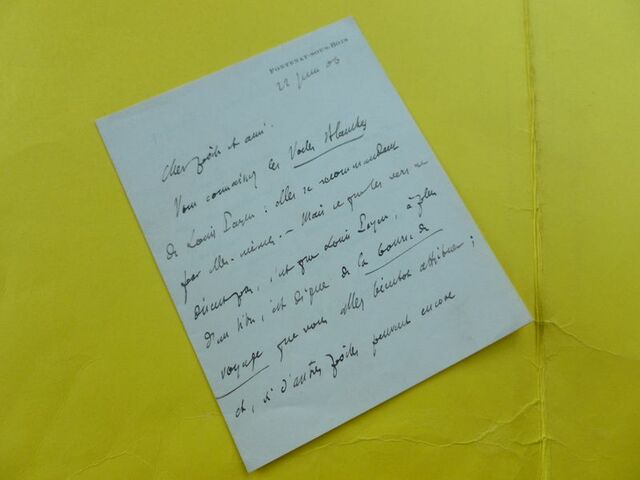 FONTENAY-SOUS-BOIS
22 Juin 03
Cher poète et ami.
Vous connaissez les Voiles blanches
de Louis Payen : elles se recommandent
par elles-mêmes. — Mais ce que les vers ne
disent pas, c'est que Louis Payen, à plus
d'un titre, est digne de la bourse de
voyage que vous allez bientôt attribuer ;
et, si d'autres poètes peuvent encore